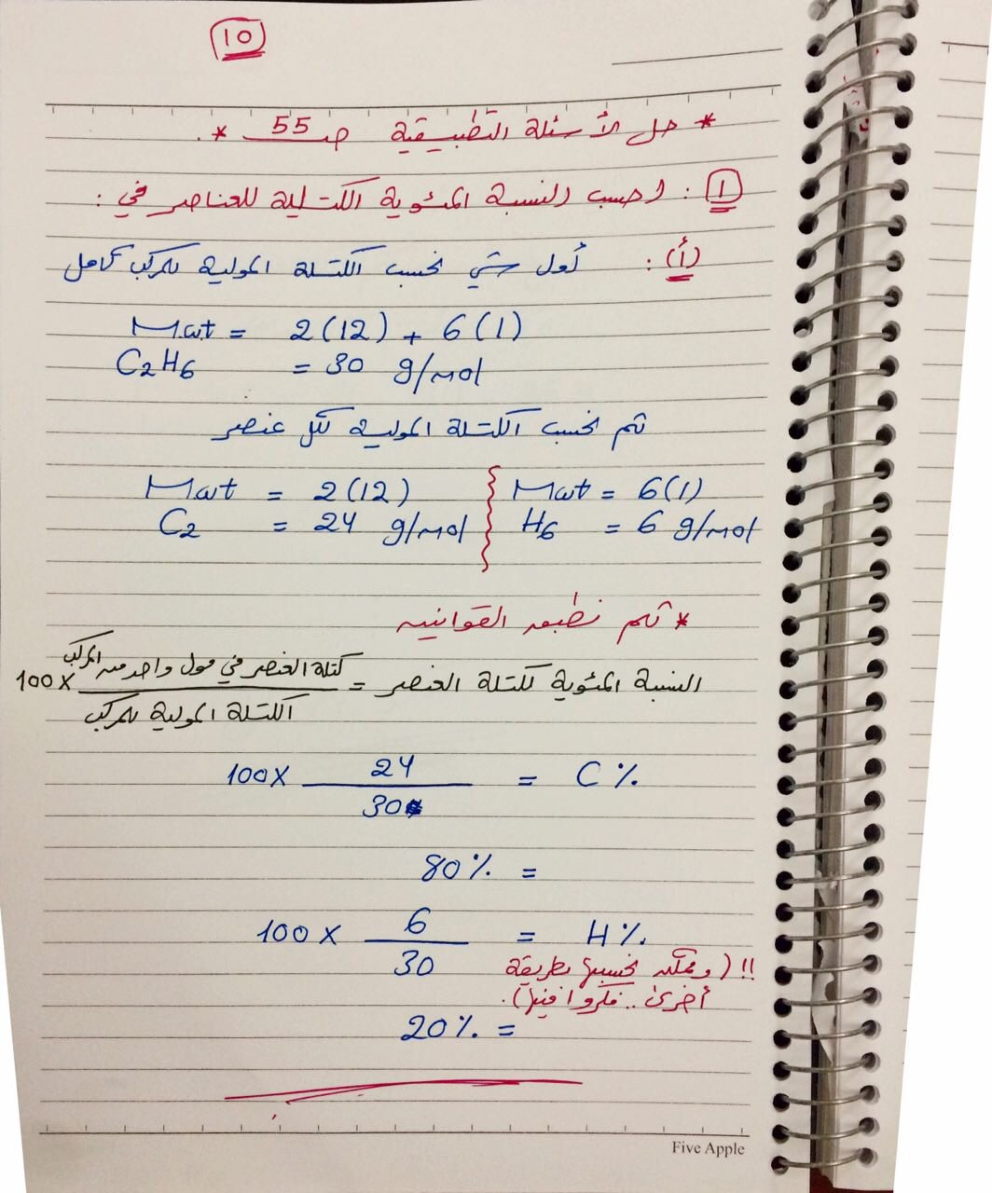 10
* حل الأسئلة التطبيقية ص 55 *.
1 : احسب النسبة المئوية الكتلية للعناصر في :
(أ) : أول شي نحسب الكتلة المولية للمركب كامل
Mwt = 2(12) + 6(1)
C2H6 = 30 g/mol
ثم نحسب الكتلة المولية لكل عنصر
Mwt = 2(12) Mwt = 6(1)
C2 = 24 g/mol H6 = 6 g/mol
* ثم نطبق القوانين
النسبة المئوية لكتلة العنصر = كتلة العنصر في مول واحد من المركب × 100
الكتلة المولية للمركب
100 × 24 = C %
30
80 % =
100 × 6 = H %
30
!! (وممكن نحسبها بطريقة
أخرى .. فكروا فيها).
20 % =
Five Apple